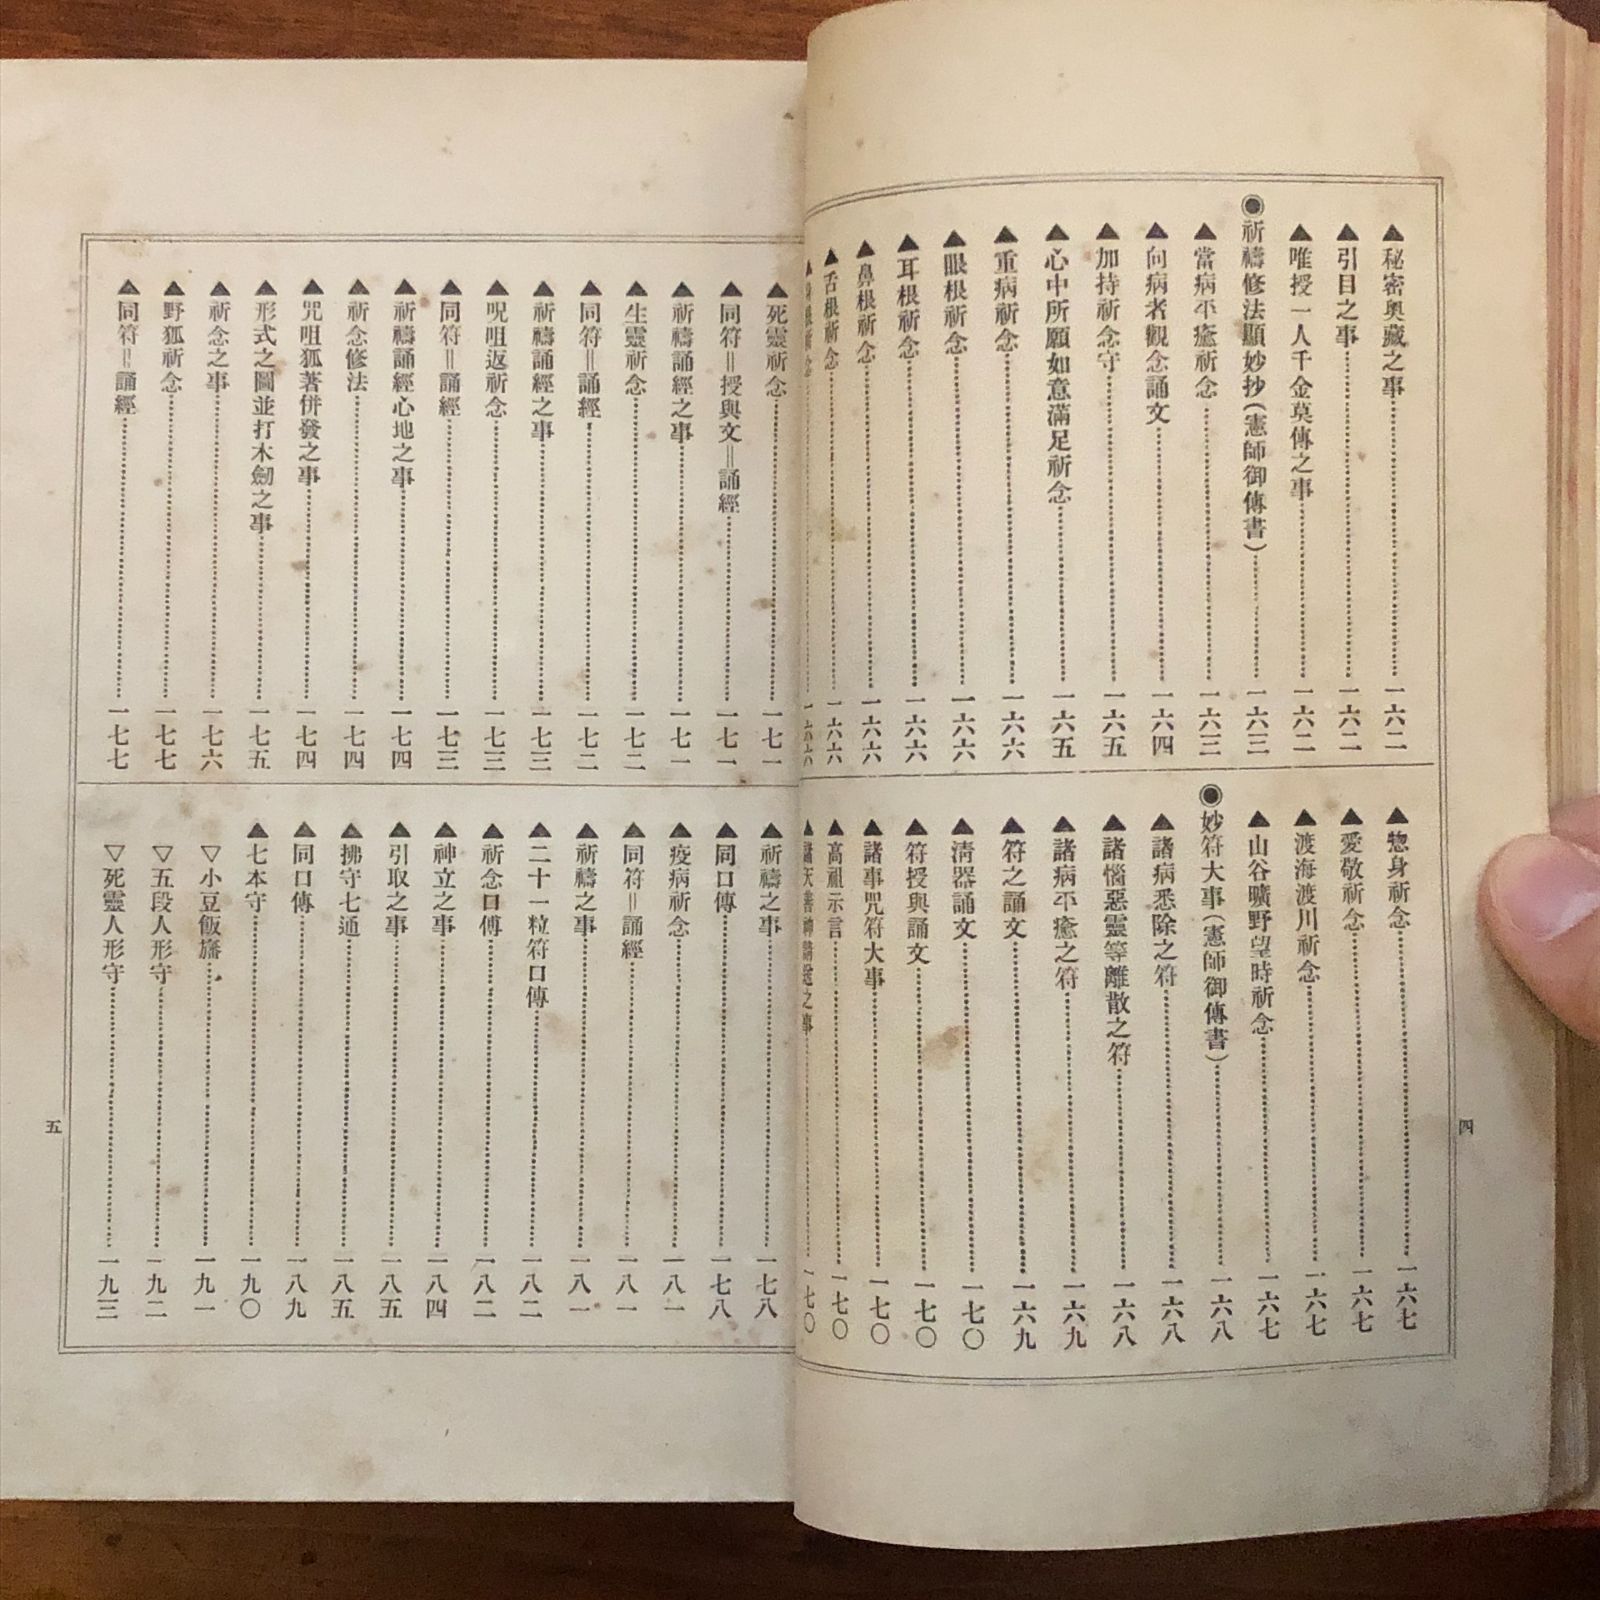 ▲秘密奥藏之事 一六二
▲引目之事 一六二
▲唯授一人千金莫傳之事 一六二
◉祈禱修法顯妙抄(憲師御傳書) 一六三
▲當病平癒祈念 一六三
▲向病者觀念誦文 一六四
▲加持祈念守 一六五
▲心中所願如意滿足祈念 一六五
▲重病祈念 一六六
▲眼根祈念 一六六
▲耳根祈念 一六六
▲鼻根祈念 一六六
▲舌根祈念 一六六
▲身根祈念 一六六
▲惣身祈念 一六七
▲愛敬祈念 一六七
▲渡海渡川祈念 一六七
▲山谷曠野望時祈念 一六七
◉妙符大事(憲師御傳書) 一六八
▲諸病悉除之符 一六八
▲諸惱惡靈等離散之符 一六八
▲諸病平癒之符 一六九
▲符之誦文 一六九
▲淸器誦文 一七〇
▲符授與誦文 一七〇
▲諸事咒符大事 一七〇
▲高祖示言 一七〇
▲諸天善神勸請之事 一七〇
四
▲死靈祈念 一七一
▲同符＝授與文＝誦經 一七一
▲祈禱誦經之事 一七一
▲生靈祈念 一七二
▲同符＝誦經 一七二
▲祈禱誦經之事 一七三
▲呪咀返祈念 一七三
▲同符＝誦經 一七三
▲祈禱誦經心地之事 一七四
▲祈念修法 一七四
▲咒咀狐著併發之事 一七四
▲形式之圖並打木劒之事 一七五
▲祈念之事 一七六
▲野狐祈念 一七七
▲同符＝誦經 一七七
▲祈禱之事 一七八
▲同口傳 一七八
▲疫病祈念 一八一
▲同符＝誦經 一八一
▲祈禱之事 一八一
▲二十一粒符口傳 一八二
▲祈念口傳 一八二
▲神立之事 一八四
▲引取之事 一八五
▲拂守七通 一八五
▲同口傳 一八九
▲七本守 一九〇
▽小豆飯旛 一九一
▽五段人形守 一九二
▽死靈人形守 一九三
五